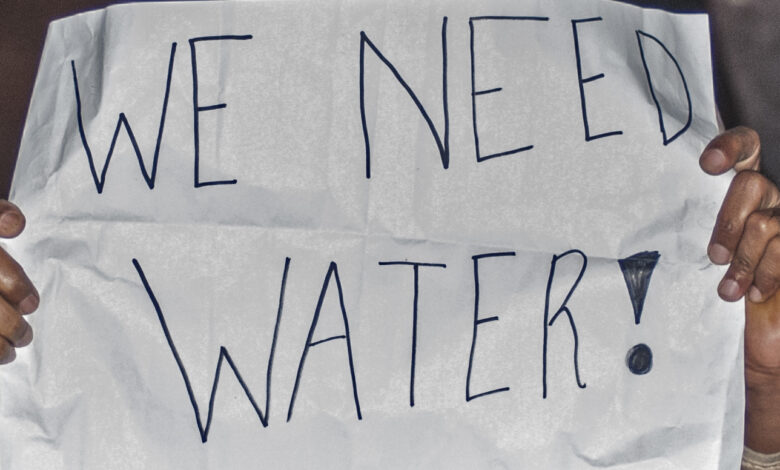 WE NEED
WATER!